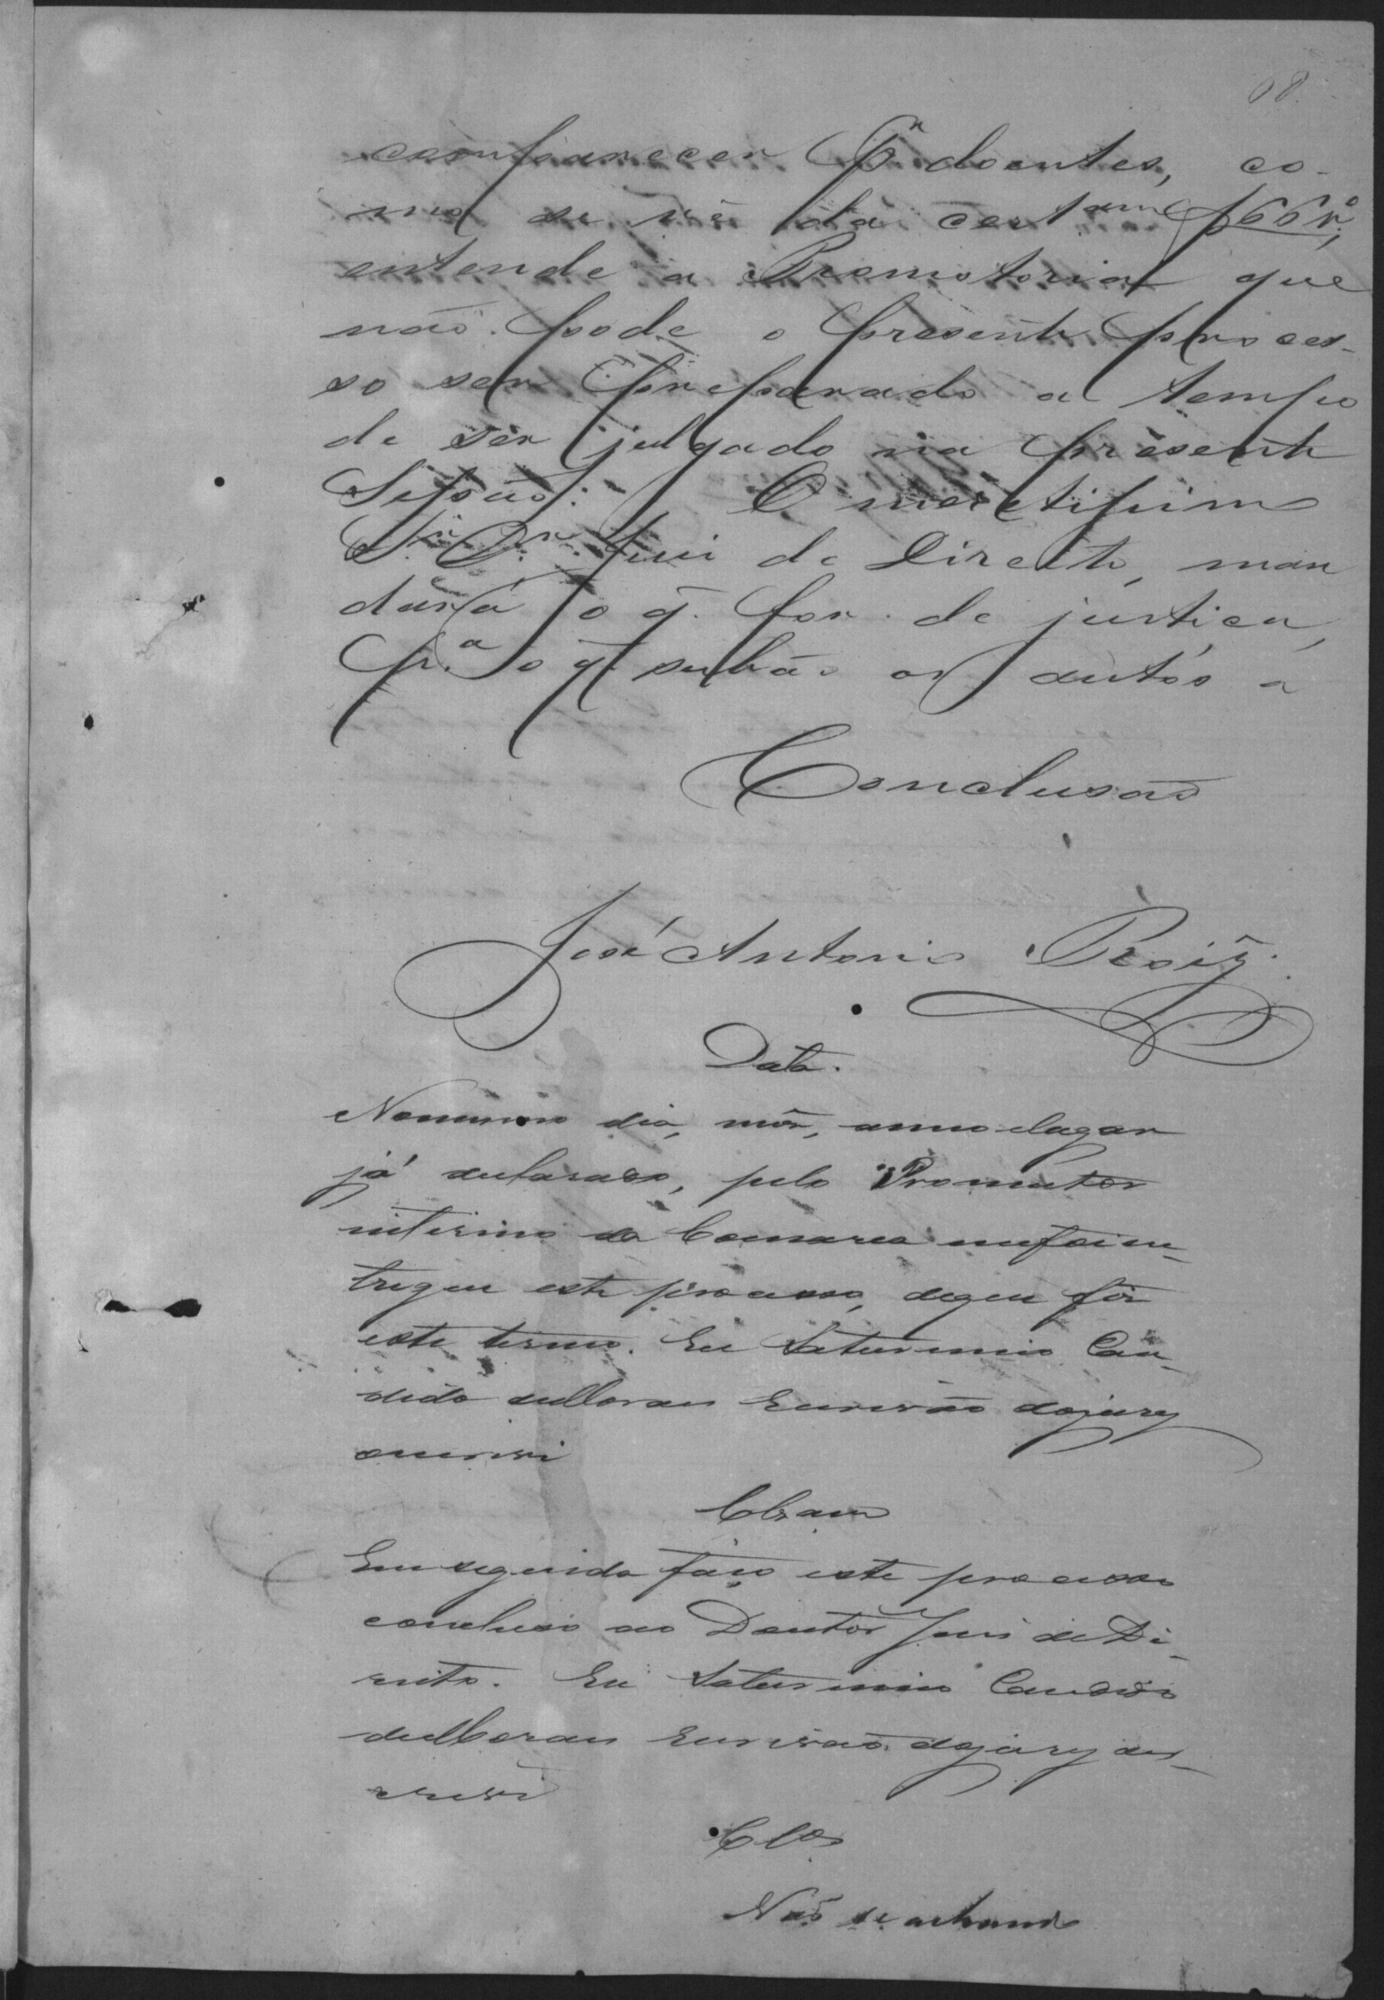 68.
comparecer pr doentes, co-
mo se vê da certam f 66 vº,
entende a Promotoria que
não pode o presente proces-
so ser preparado a tempo
de ser julgado na presente
Sessão. O meretissimo
Sr. Dr. Juiz de Direito, man
dará o q̃ for de justiça,
pr.ª o q̃ subão os autos a
Conclusão
José Antonio Roiz
Data.
No mesmo dia, mês, anno e lugar
já declarado, pelo Promotor
interino da Comarca me foi en-
tregue este processo, do que fiz
este termo. Eu Saturnino Can-
dido Escrivão do jury
escrevi
Clsam
Em seguida faço este processo
concluso ao Doutor Juis de Di-
reito. Eu Saturnino Candido
Escrivão do jury es-
crevi
Clos
Não se achando